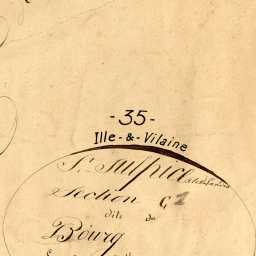 - 35 -
Ille - & - Vilaine
St. Sulpice des Landes
Section C2
dite du
Bourg